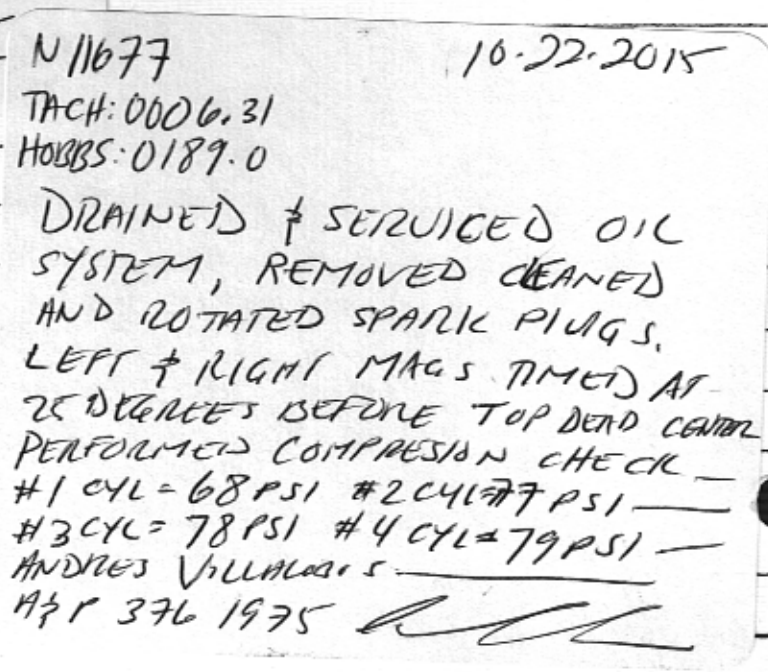 N11677 10.22.2015
TACH: 0006.31
HOBBS: 0189.0
DRAINED & SERVICED OIL
SYSTEM, REMOVED CLEANED
AND ROTATED SPARK PLUGS.
LEFT & RIGHT MAGS TIMED AT
25 DEGREES BEFORE TOP DEAD CENTER
PERFORMED COMPRESION CHECK
#1 CYL = 68 PSI #2 CYL=77 PSI
#3 CYL= 78 PSI #4 CYL= 79 PSI
ANDRES VILLALOBOS
A&P 376 1975